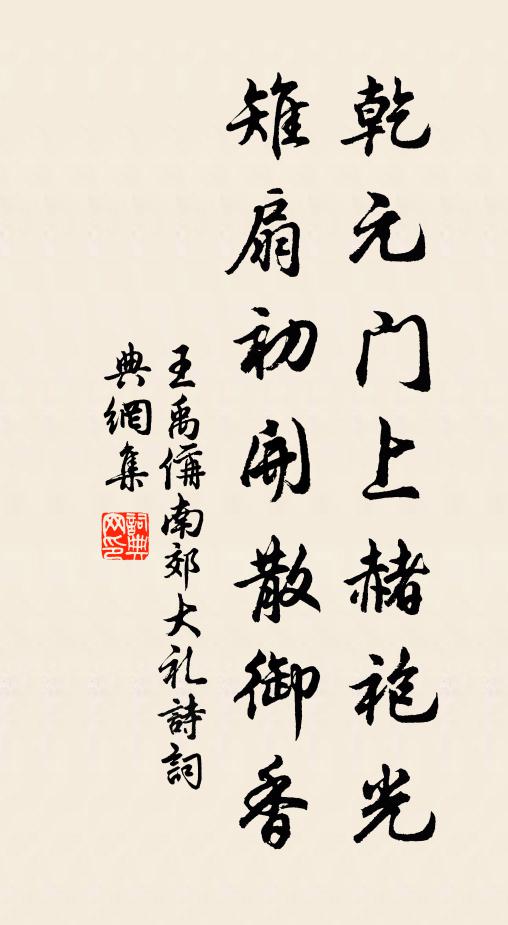 乾元门上赭袍光
雉扇初開散御香
王禹偁南郊大礼詩詞
典網集
詞典
网印